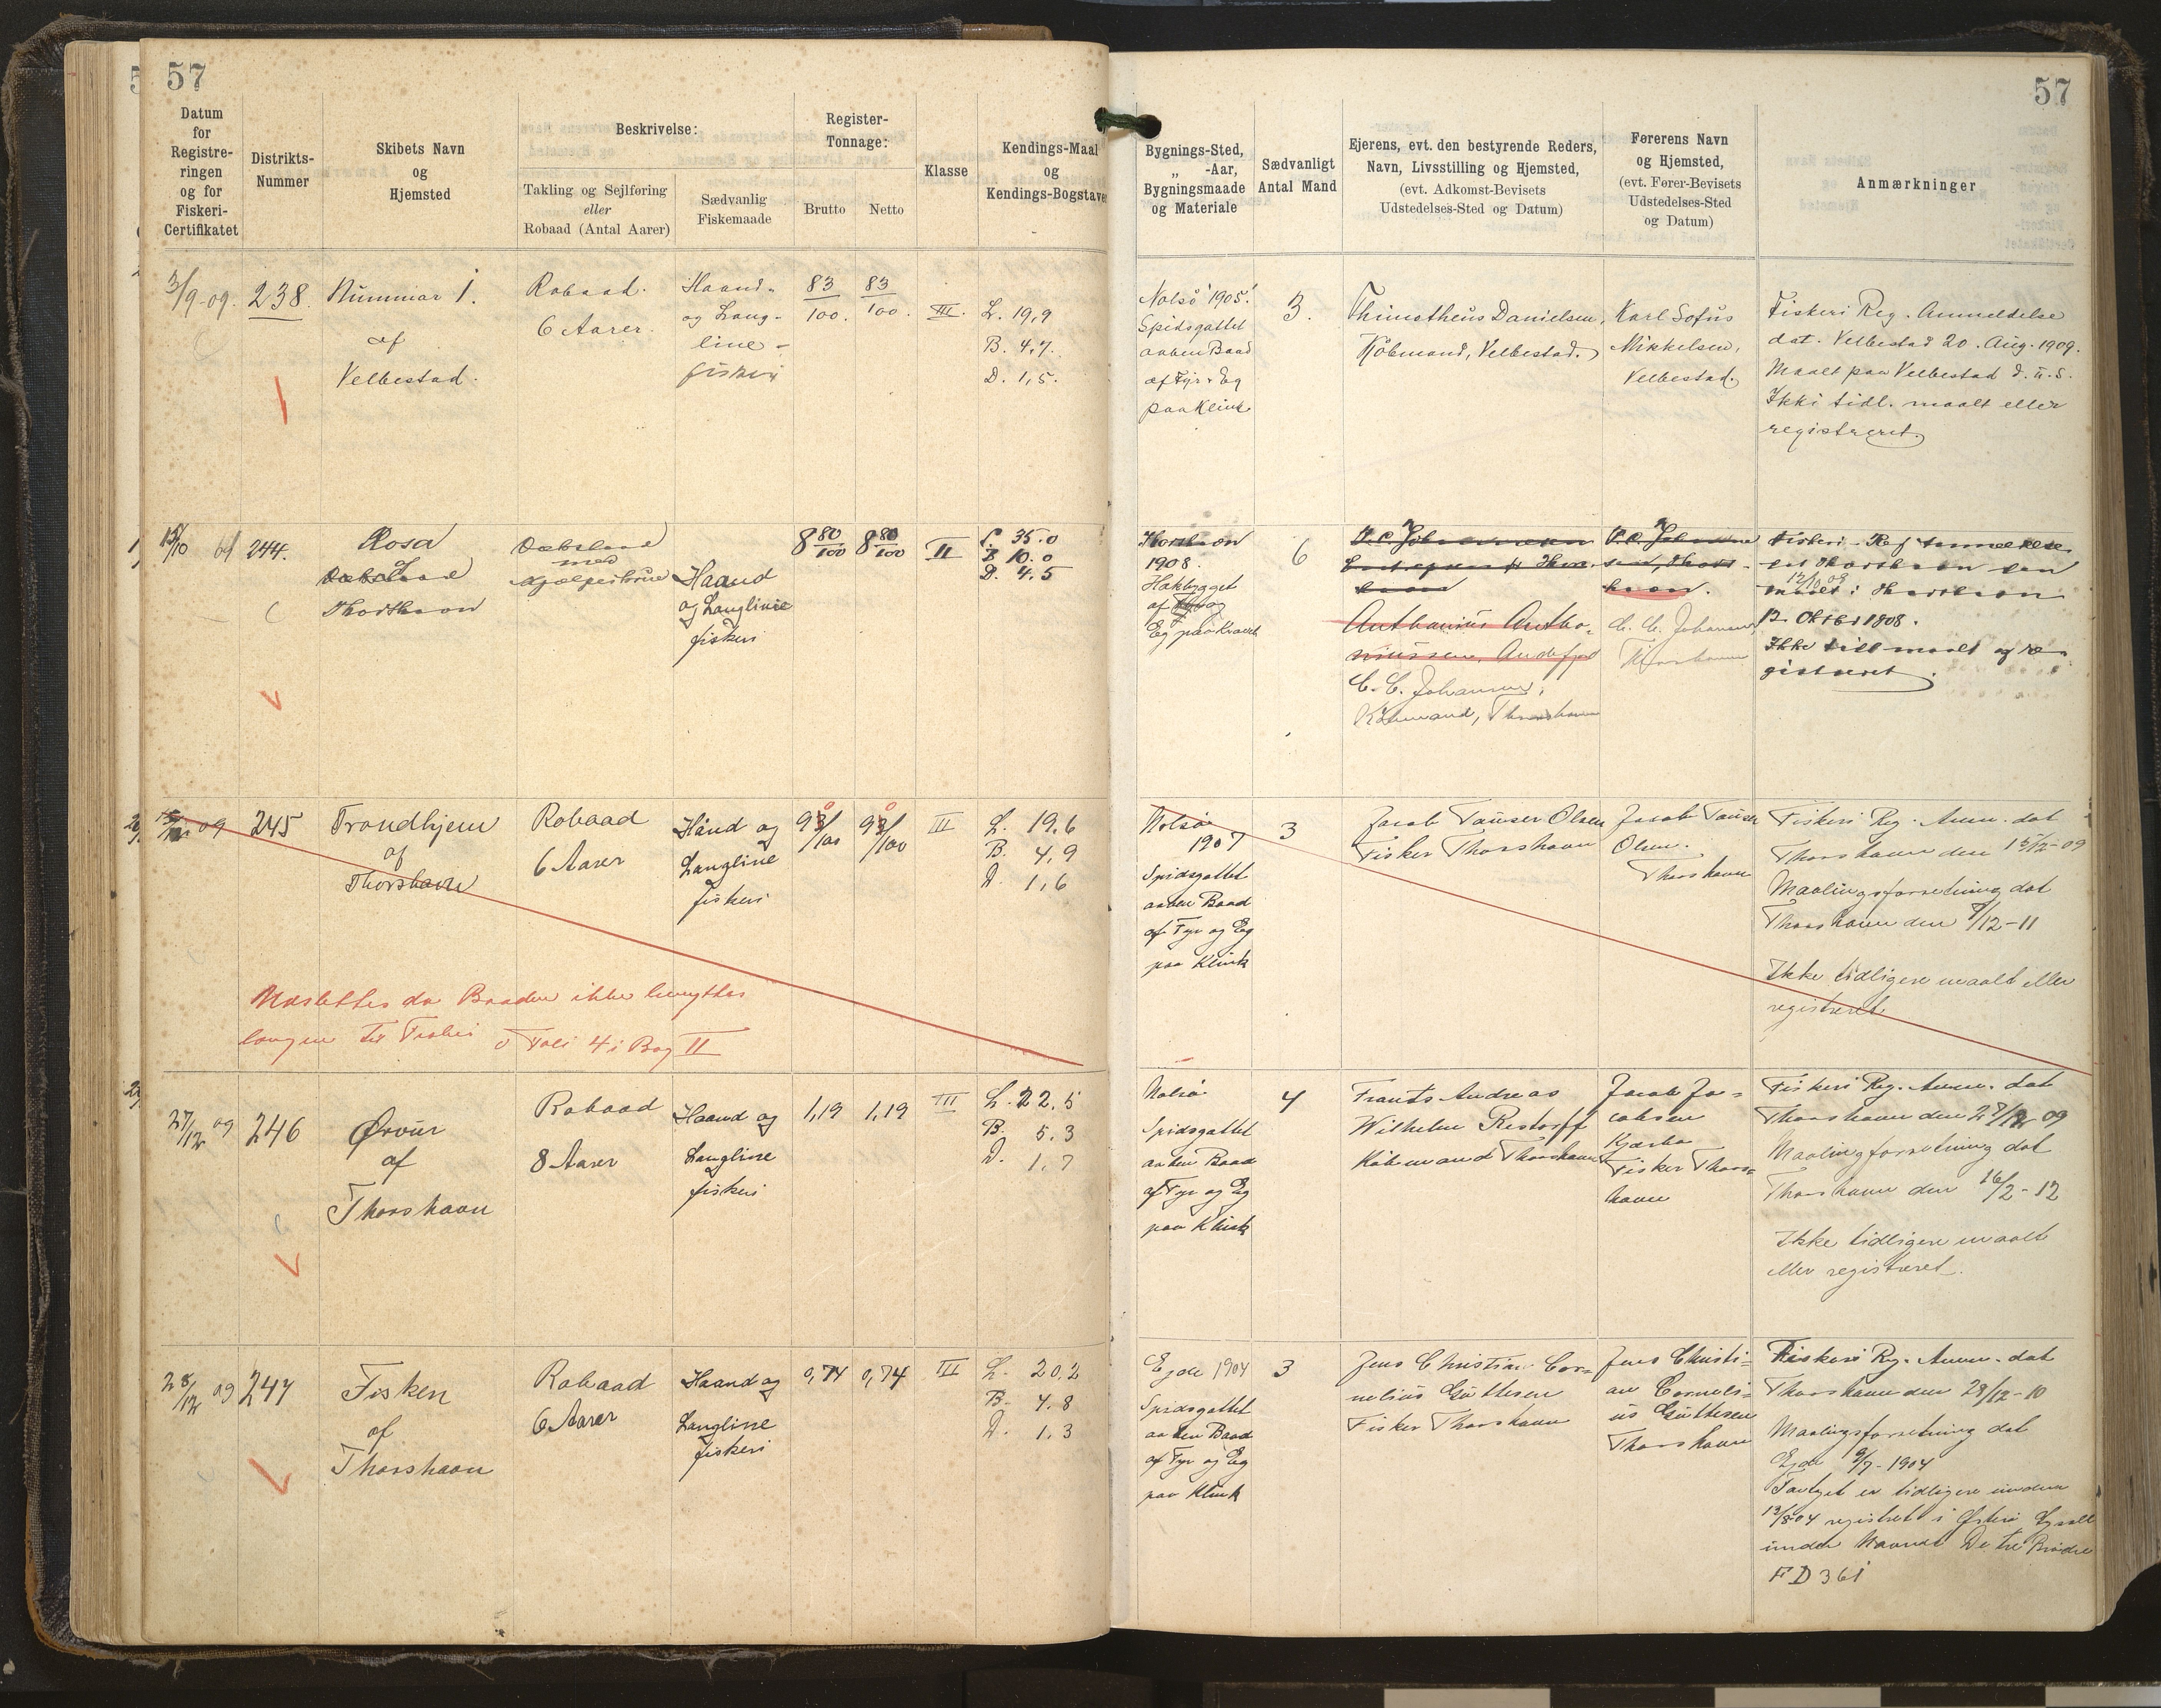 57
57
Datum
for
Registre-
ringen
og for
Fiskeri-
Certifikatet
Distrikts-
Nummer
Skibets Navn
og
Hjemsted
Beskrivelse:
Takling og Sejlføring
eller
Robaad (Antal Aarer)
Sædvanlig
Fiskemaade
Register-
Tonnage:
Brutto
Netto
Klasse
Kendings-Maal
og
Kendings-Bogstaver
Bygnings-Sted,
„ -Aar,
Bygningsmaade
og Materiale
Sædvanligt
Antal Mand
Ejerens, evt. den bestyrende Reders,
Navn, Livsstilling og Hjemsted,
(evt. Adkomst-Bevisets
Udstedelses-Sted og Datum)
Førerens Navn
og Hjemsted,
(evt. Fører-Bevisets
Udstedelses-Sted
og Datum)
Anmærkninger
3/9-09.
238.
Nummer 1.
af
Velbestad.
Robaad.
6 Aarer.
Haand-
og Lang-
line-
fiskeri
83/100.
83/100.
III.
L. 19,9
B. 4,7.
D. 1,5.
Nolsö 1905.
Spidsgattet
aaben Baad
af Fyr & Eg
paa Klink
3.
Thimotheus Danielsen,
Købmand, Velbestad.
Karl Sofus
Mikkelsen,
Velbestad.
Fiskeri Reg. Anmeldelse
dat. Velbestad 20. Aug. 1909.
Maalt paa Velbestad d. u. s.
Ikki tidl. maalt eller
registreret.
244.
Rosa
af
Thorshavn
Dæksbaad
med
Hjælpeskrue
Haand
og Langline
fiskeri
8 80/100
8 80/100
II
L. 35.0
B 10.0
D. 4.5
Thorshavn
1908.
Hakbygget
af Fyr og
Eg paa Kravel
6
Anthonius Antho-
niussen, Andefjord
C. C. Johansen,
Købmand, Thorshavn
C. C. Johansen,
Thorshavn
12 Oktbr 1908.
Ikke tidl maalt og re-
gistreret.
09
245
Trondhjem
af
Thorshavn
Robaad
6 Aarer
Haand og
Langline
fiskeri
93/100
93/100
III
L. 19,6
B. 4,9
D. 1,6
Nolsö
1907
Spidsgattet
aaben Baad
af Fyr og Eg
paa Klink
3
Jacob Tauser Olsen
Fisker Thorshavn
Jacob Tauser
Olsen.
Thorshavn
Fiskeri Reg. Anm. dat
Thorshavn den 15/12-09
Maalingsforretning dat
Thorshavn den 9/12-11
Ikke tidligere maalt eller
registreret
Udslettes da Baaden ikke benyttes
længere til Fiskeri Foli 4 i Bog II
27/12 09
246
Ørvur
af
Thorshavn
Robaad
8 Aarer
Haand og
Langline
fiskeri
1,19
1,19
III
L. 22,5
B. 5,3
D. 1,7
Nolsö
Spidsgattet
aaben Baad
af Fyr og Eg
paa Klink
4
Frants Andreas
Wilhelm Restorff
Købmand Thorshavn
Jacob Ja-
cobsen
Kjærbo
Fisker Thors-
havn
Fiskeri Reg. Anm. dat
Thorshavn den 27/12 09
Maalingsforretning dat
Thorshavn den 16/2-12
Ikke tidligere maalt
eller registreret.
28/12 09
247
Fisken
af
Thorshavn
Robaad
6 Aarer
Haand og
Langline
fiskeri
0,74
0,74
III
L. 20,2
B. 4,8
D. 1,3
Ejde 1904
Spidsgattet
aaben Baad
af Fyr og Eg
paa Klink
3
Jens Christian Cor-
nelius Guttesen
Fisker Thorshavn
Jens Christi-
an Corneli-
us Guttesen
Thorshavn
Fiskeri Reg. Anm. dat
Thorshavn den 28/12-10
Maalingsforretning dat
Ejde 9/7-1904
Fartøjet er tidligere under
13/8-04 registret i Østerø Syssel
under Navnet De tre Brødre
FD 361